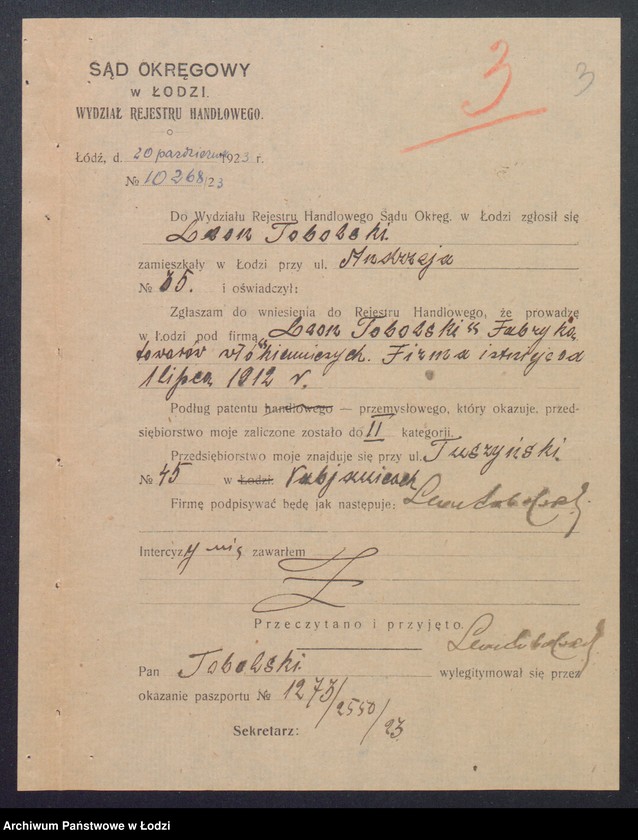 3
3
SĄD OKRĘGOWY
w ŁODZI.
WYDZIAŁ REJESTRU HANDLOWEGO.
Łódź, d. 20 październik 1923 r.
№ 10268/23
Do Wydziału Rejestru Handlowego Sądu Okręg. w Łodzi zgłosił się
Leon Tobolski.
zamieszkały w Łodzi przy ul. Andrzeja
№ 35. i oświadczył:
Zgłaszam do wniesienia do Rejestru Handlowego, że prowadzę
w Łodzi pod firmą „Leon Tobolski" Fabryka
towarów włókienniczych. Firma istnieje od
1 lipca 1912 r.
Podług patentu handlowego — przemysłowego, który okazuje, przed-
siębiorstwo moje zaliczone zostało do II kategorji.
Przedsiębiorstwo moje znajduje się przy ul. Tuszyński
№ 45 w Łodzi. Pabjanicach
Firmę podpisywać będę jak następuje: Leon Tobolski
Intercyzy nie zawarłem
Przeczytano i przyjęto.
Leon Tobolski
Pan Tobolski wylegitymował się przez
okazanie paszportu № 1273/2550/23
Sekretarz:
Archiwum Państwowe w Łodzi